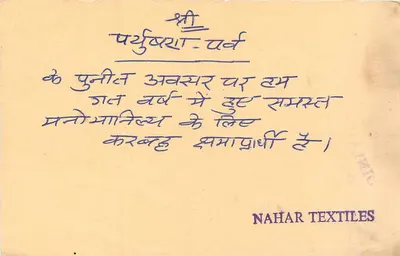 श्री
पर्युषण-पर्व
के पुनीत अवसर पर हम
गत वर्ष में हुए समस्त
मनोमालिन्य के लिए
करबद्ध क्षमाप्रार्थी है।
NAHAR TEXTILES